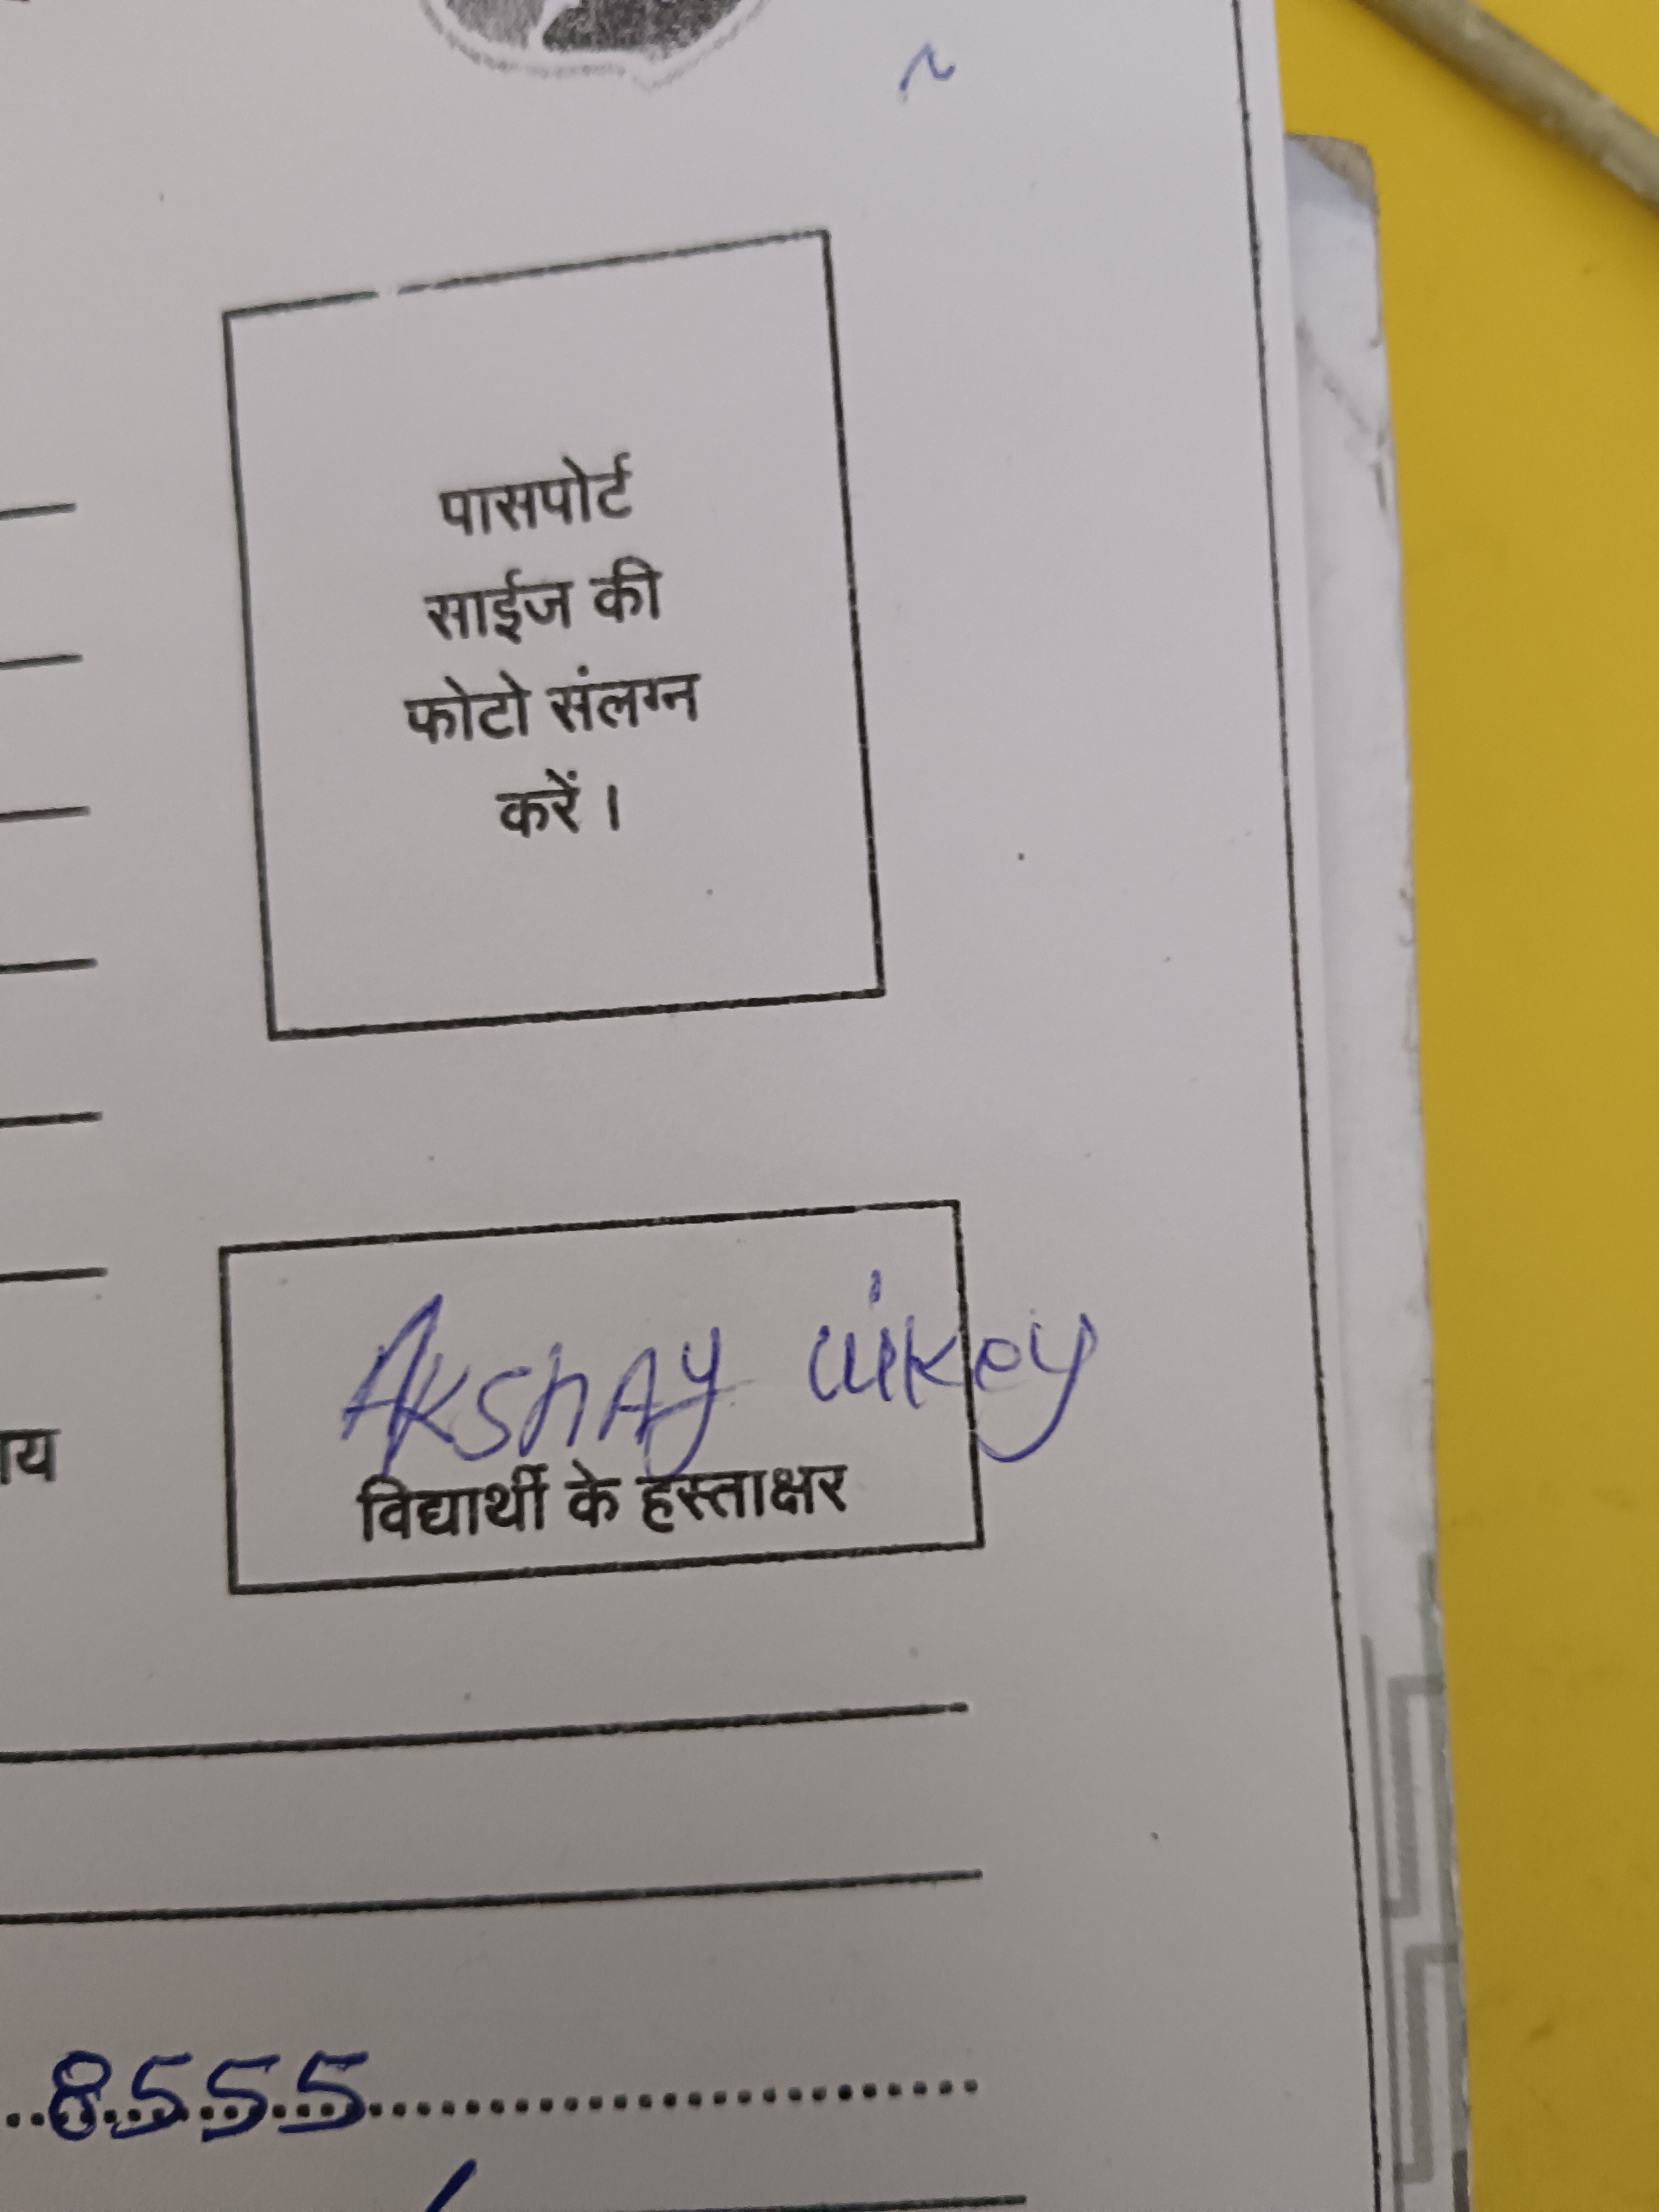 पासपोर्ट
साईज की
फोटो संलग्न
करें।
Akshay uikey
विद्यार्थी के हस्ताक्षर
8555